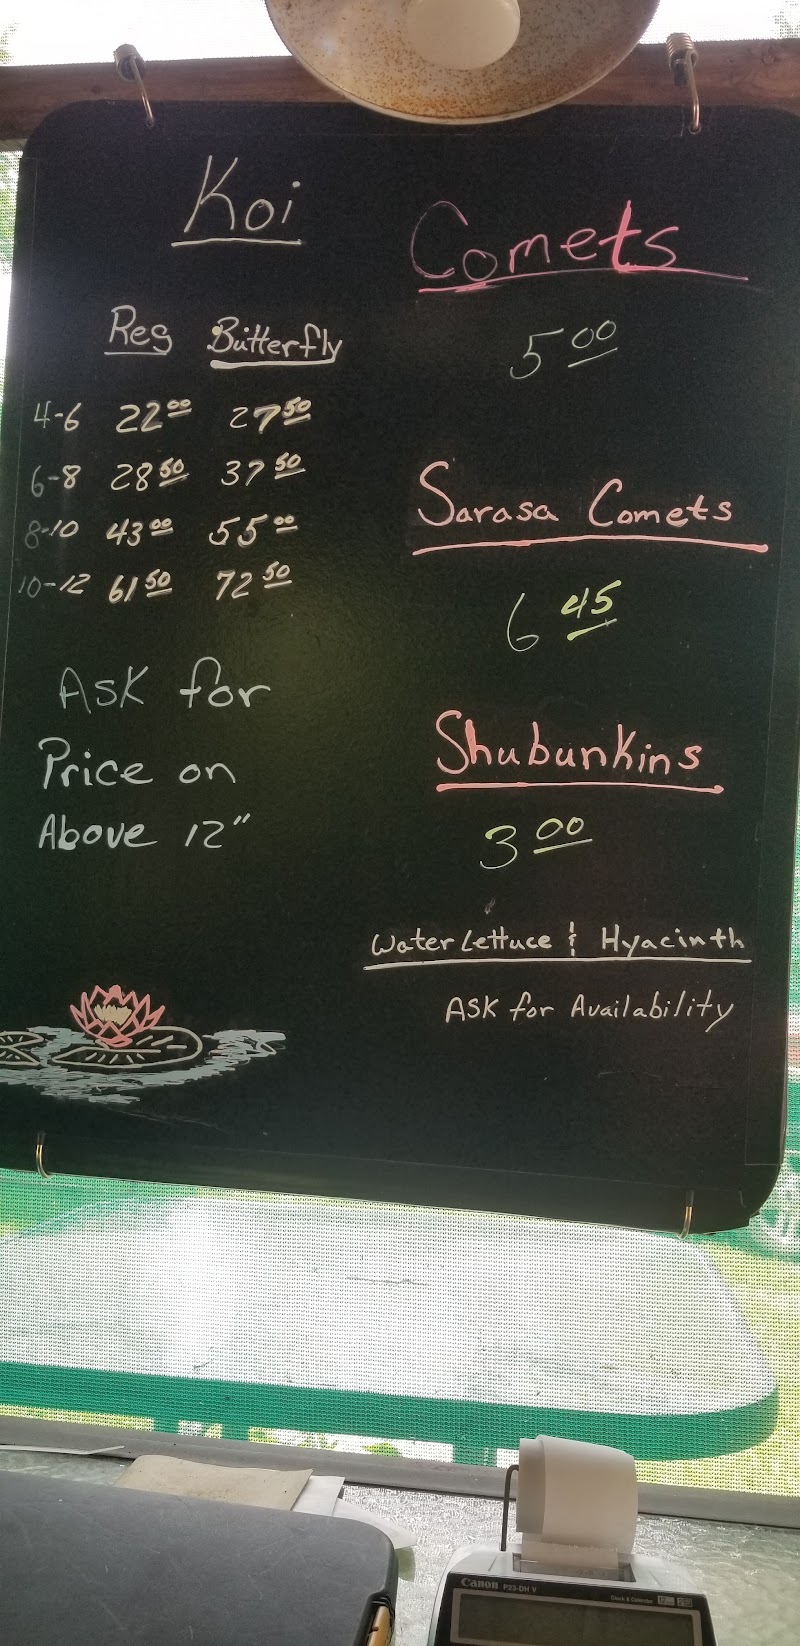 Koi
Reg Butterfly
4-6 22 00 27 50
6-8 28 50 37 50
8-10 43 00 55 00
10-12 61 50 72 50
Ask for
Price on
Above 12"
Comets
5 00
Sarasa Comets
6 45
Shubunkins
3 00
Water Lettuce & Hyacinth
Ask for Availability
Canon P23-DH V
Clock & Calendar 12